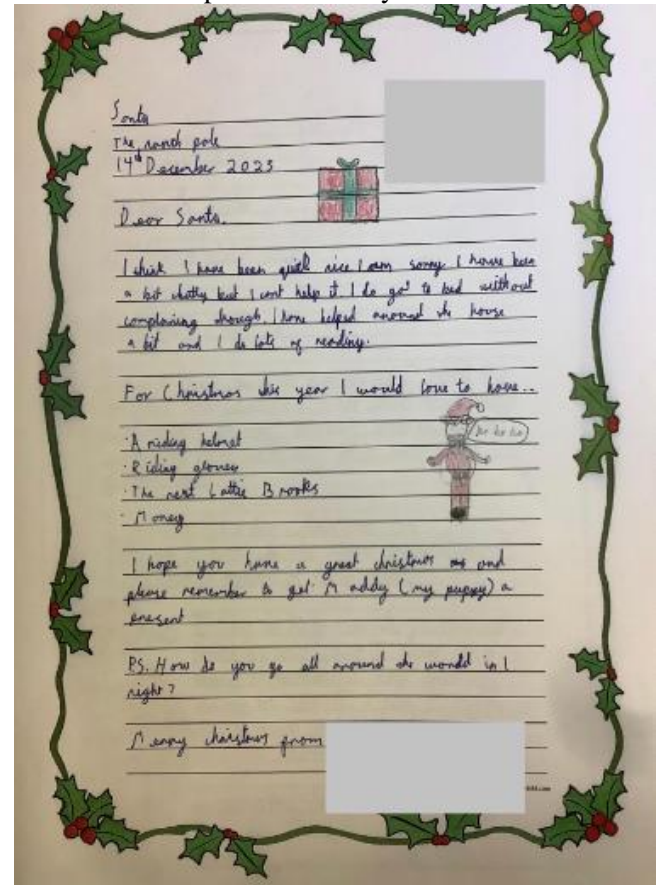 Santa
The north pole
14th December 2023
Dear Santa.
I think I have been quiet nice I am sorry I have been
a bit chatty but I cant help it. I do go to bed without
complaining though. I have helped around the house
a bit and I do lots of reading.
For Christmas this year I would love to have..
· A riding helmet
Ho ho ho
· Riding gloves
· The next Lottie Brooks
· Money
I hope you have a great christmas and
please remember to get Maddy (my puppy) a
present
PS. How do you go all around the world in 1
night?
Merry christmas from